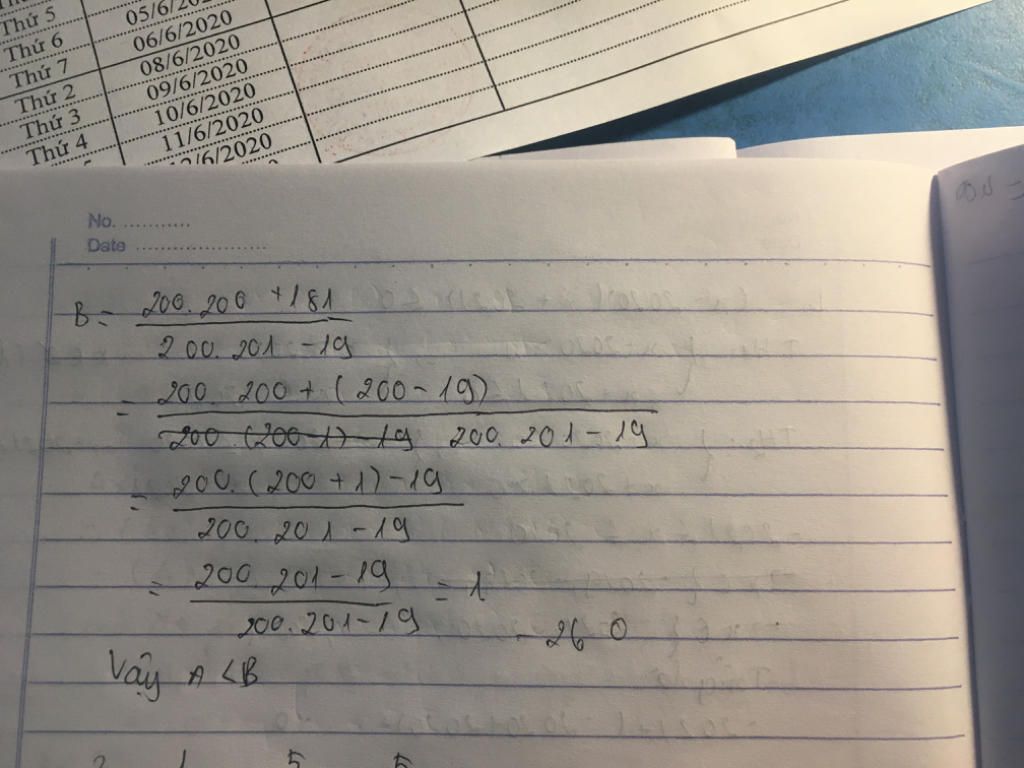 Thứ 5 05/6/20
Thứ 6 06/6/2020
Thứ 7 08/6/2020
Thứ 2 09/6/2020
Thứ 3 10/6/2020
Thứ 4 11/6/2020
/6/2020
No. ...........
Date ......................
B = 200.200 + 181
200.201 - 19
= 200.200 + (200 - 19)
200.(200-1)-19 200.201 - 19
= 200.(200 + 1) - 19
200.201 - 19
= 200.201 - 19 = 1
200.201 - 19
- 26 0
Vậy A < B